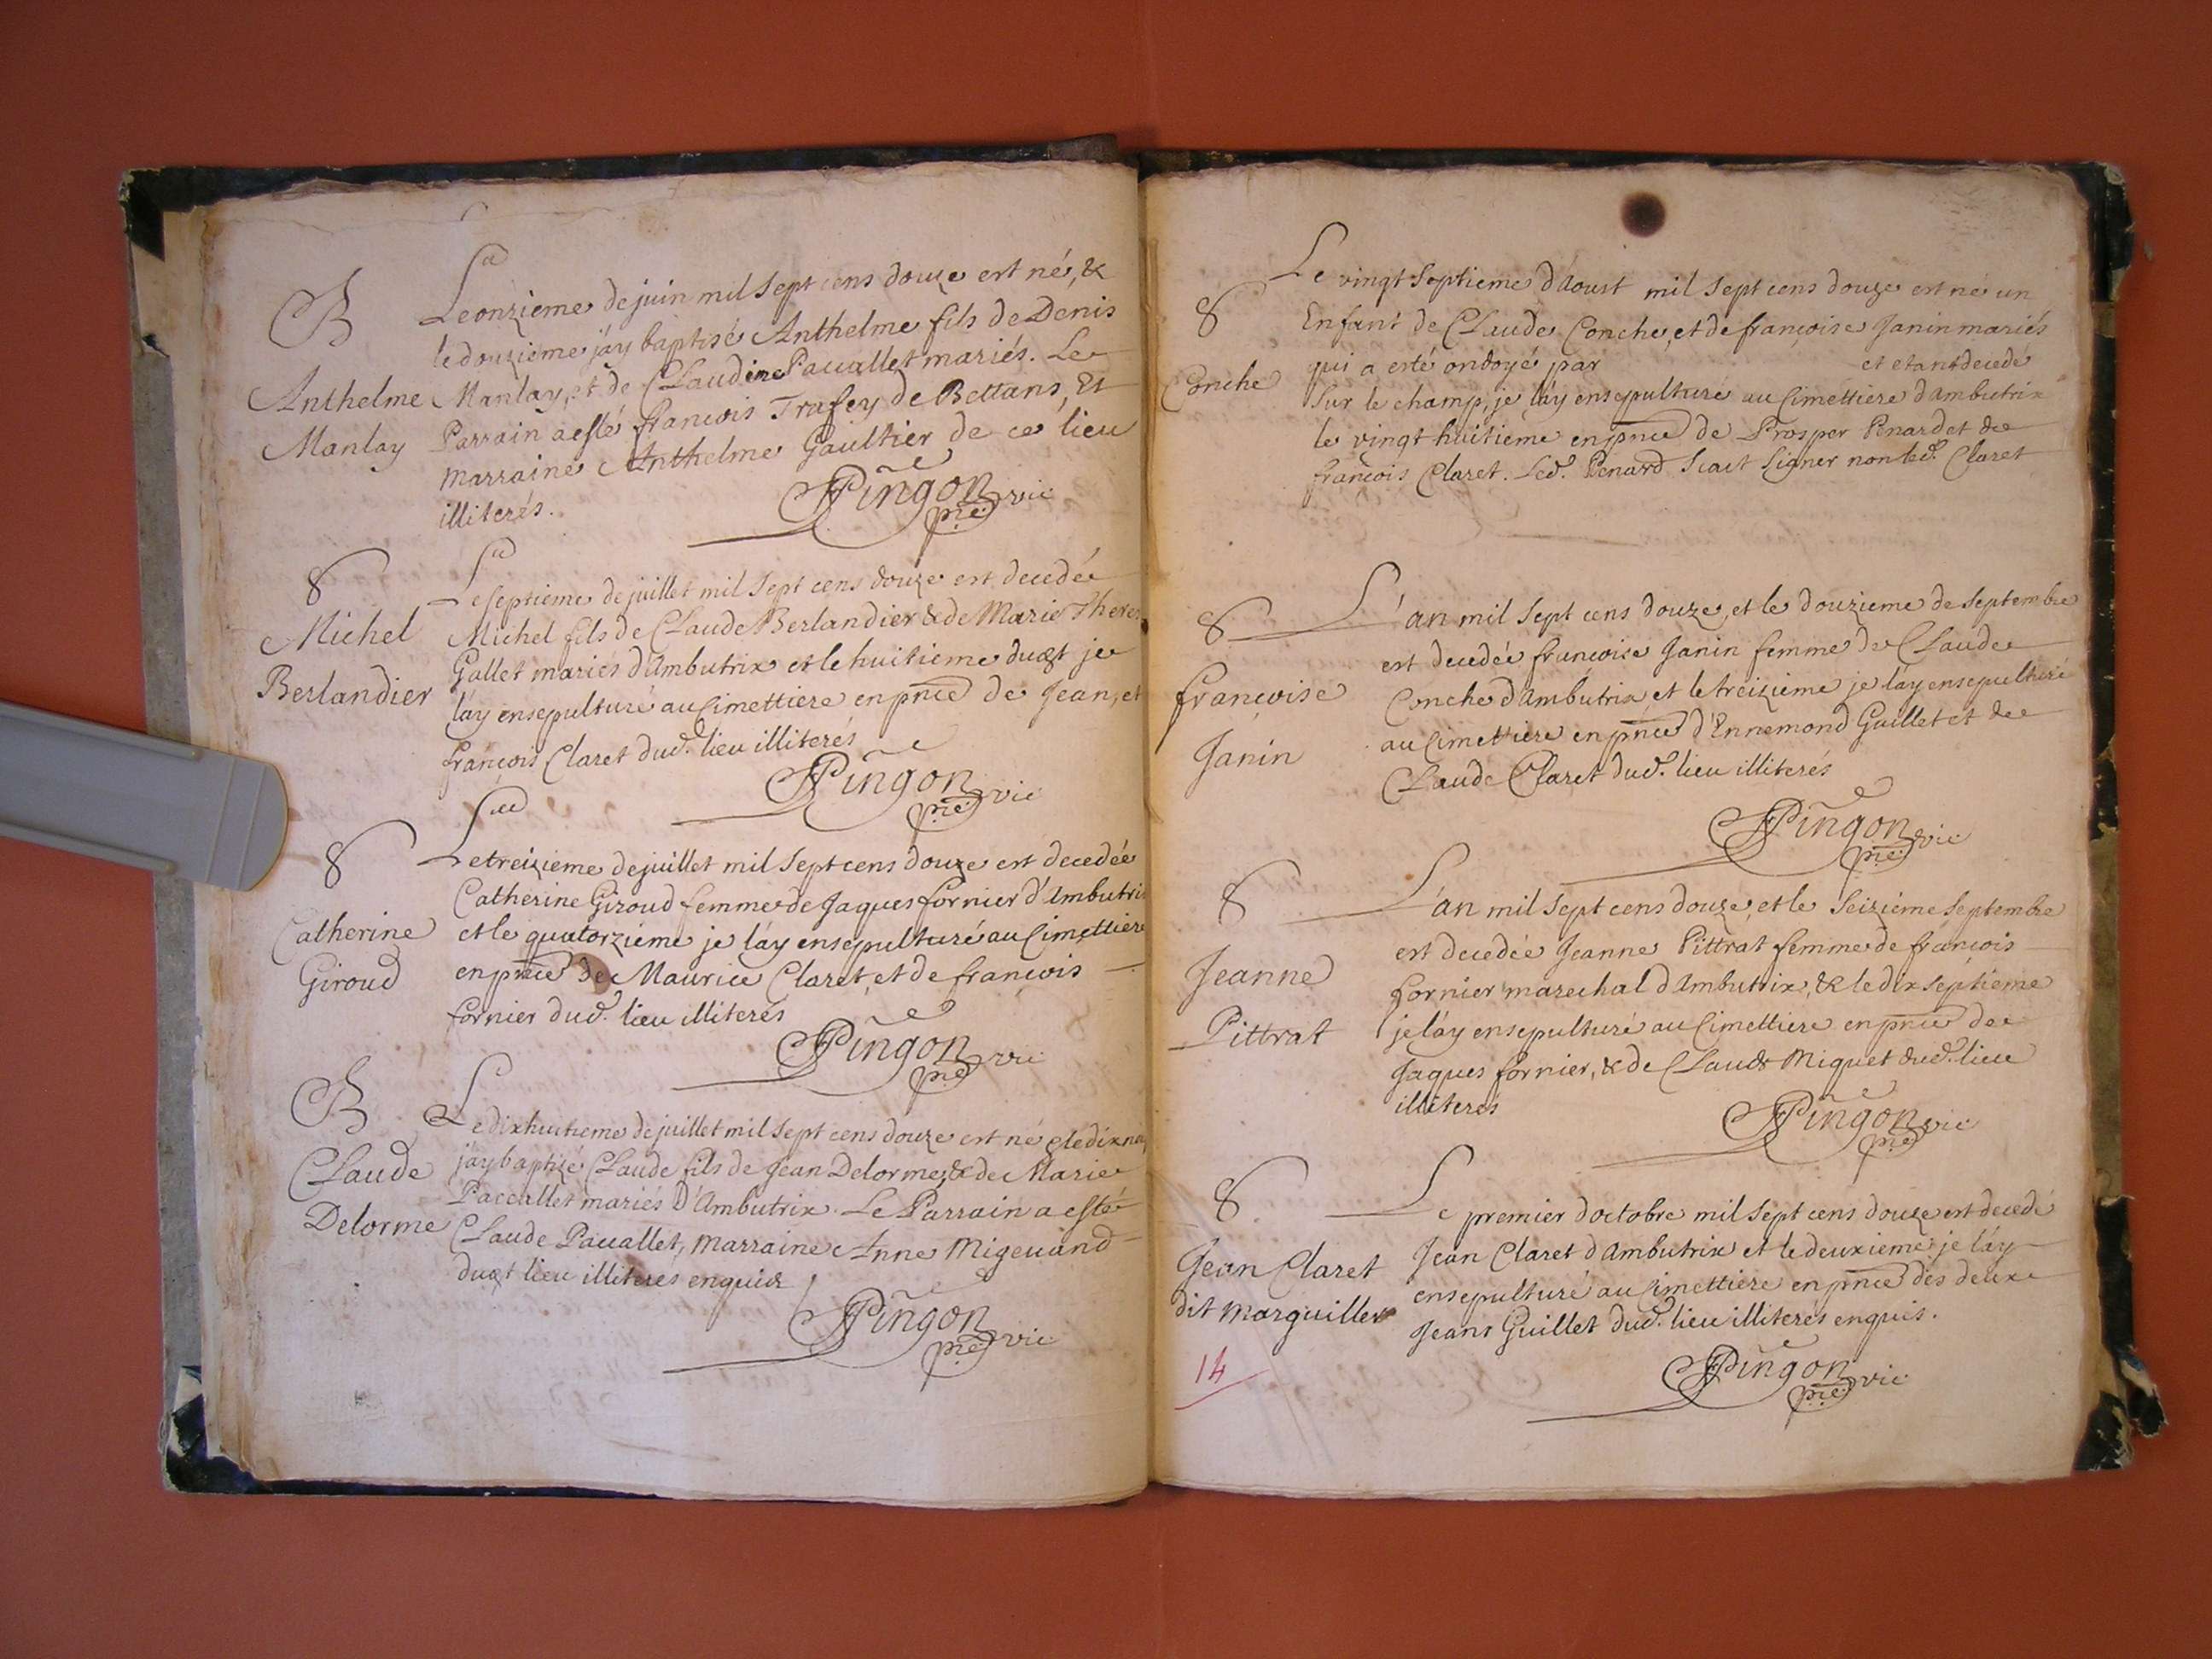 B
Anthelme
Manlay
Le onzieme de juin mil sept cens douze est né, &
le douzieme j'ay baptisé Anthelme fils de Denis
Manlay, et de Claudine Pacuallet mariés. Le
Parrain a esté francois Trafey de Bettans, Et
marraine Anthelme Gaultier de ce lieu
illiterés.
Pingon
pre vic
8
Michel
Berlandier
Le septieme de juillet mil sept cens douze est decedée
Michel fils de Claude Berlandier & de Marie There
Gallet mariés d'Ambutrix et le huitieme dudt je
l'ay ensepulturé au Cimettiere en pnce de Jean, et
françois Claret dud. lieu illiterés
Pingon
pre vic
8
Catherine
Giroud
Le treizieme de juillet mil sept cens douze est decedée
Catherine Giroud femme de Jaques fornier d'Ambutri
et le quatorzieme je l'ay ensepulturé au Cimettiere
en pnce de Maurice Claret, et de francois
fornier dud. lieu illiterés
Pingon
pre vic
B
Claude
Delorme
Le dixhuitieme de juillet mil sept cens douze est né & le dixne
j'ay baptizé Claude fils de Jean Delorme, & de Marie
Paccallet mariés D'Ambutrix. Le Parrain a esté
Claude Pacuallet, marraine Anne Migeuand
dudt lieu illiterés enquis
Pingon
pre vic
8
Conche
Le vingt septieme d'Aoust mil sept cens douze est né un
Enfant de Claude Conche, et de françoise Janin mariés
qui a esté ondoyé par et etant decedé
sur le champ, je l'ay ensepulturé au Cimettiere d'ambutrix
le vingt huitieme en pnce de Prosper Penard et de
françois Claret. Led. Penard scait signer non led. Claret
8
francoise
Janin
L'an mil sept cens douze, et le douzieme de septembre
est decedée françoise Janin femme de Claude
Conche d'Ambutrix et le treizieme je l'ay ensepulturé
au Cimettiere en pnce d'Ennemond Guillet et de
Claude Claret dud. lieu illiterés
Pingon
pre vic
8
Jeanne
Pittrat
L'an mil sept cens douze, et le seizieme septembre
est decedée Jeanne Pittrat femme de françois
fornier marechal d'Ambutrix, & le dix septieme
je l'ay ensepulturé au Cimettiere en pnce de
Jaques fornier, & de Claude Miguet dud. lieu
illiterés
Pingon
pre vic
8
Jean Claret
dit marguiller
Le premier d'octobre mil sept cens douze est decedé
Jean Claret d'Ambutrix et le deuxieme je l'ay
ensepulturé au Cimettiere en pnce des deux
Jeans Guillet dud. lieu illiterés enquis.
Pingon
pre vic
14